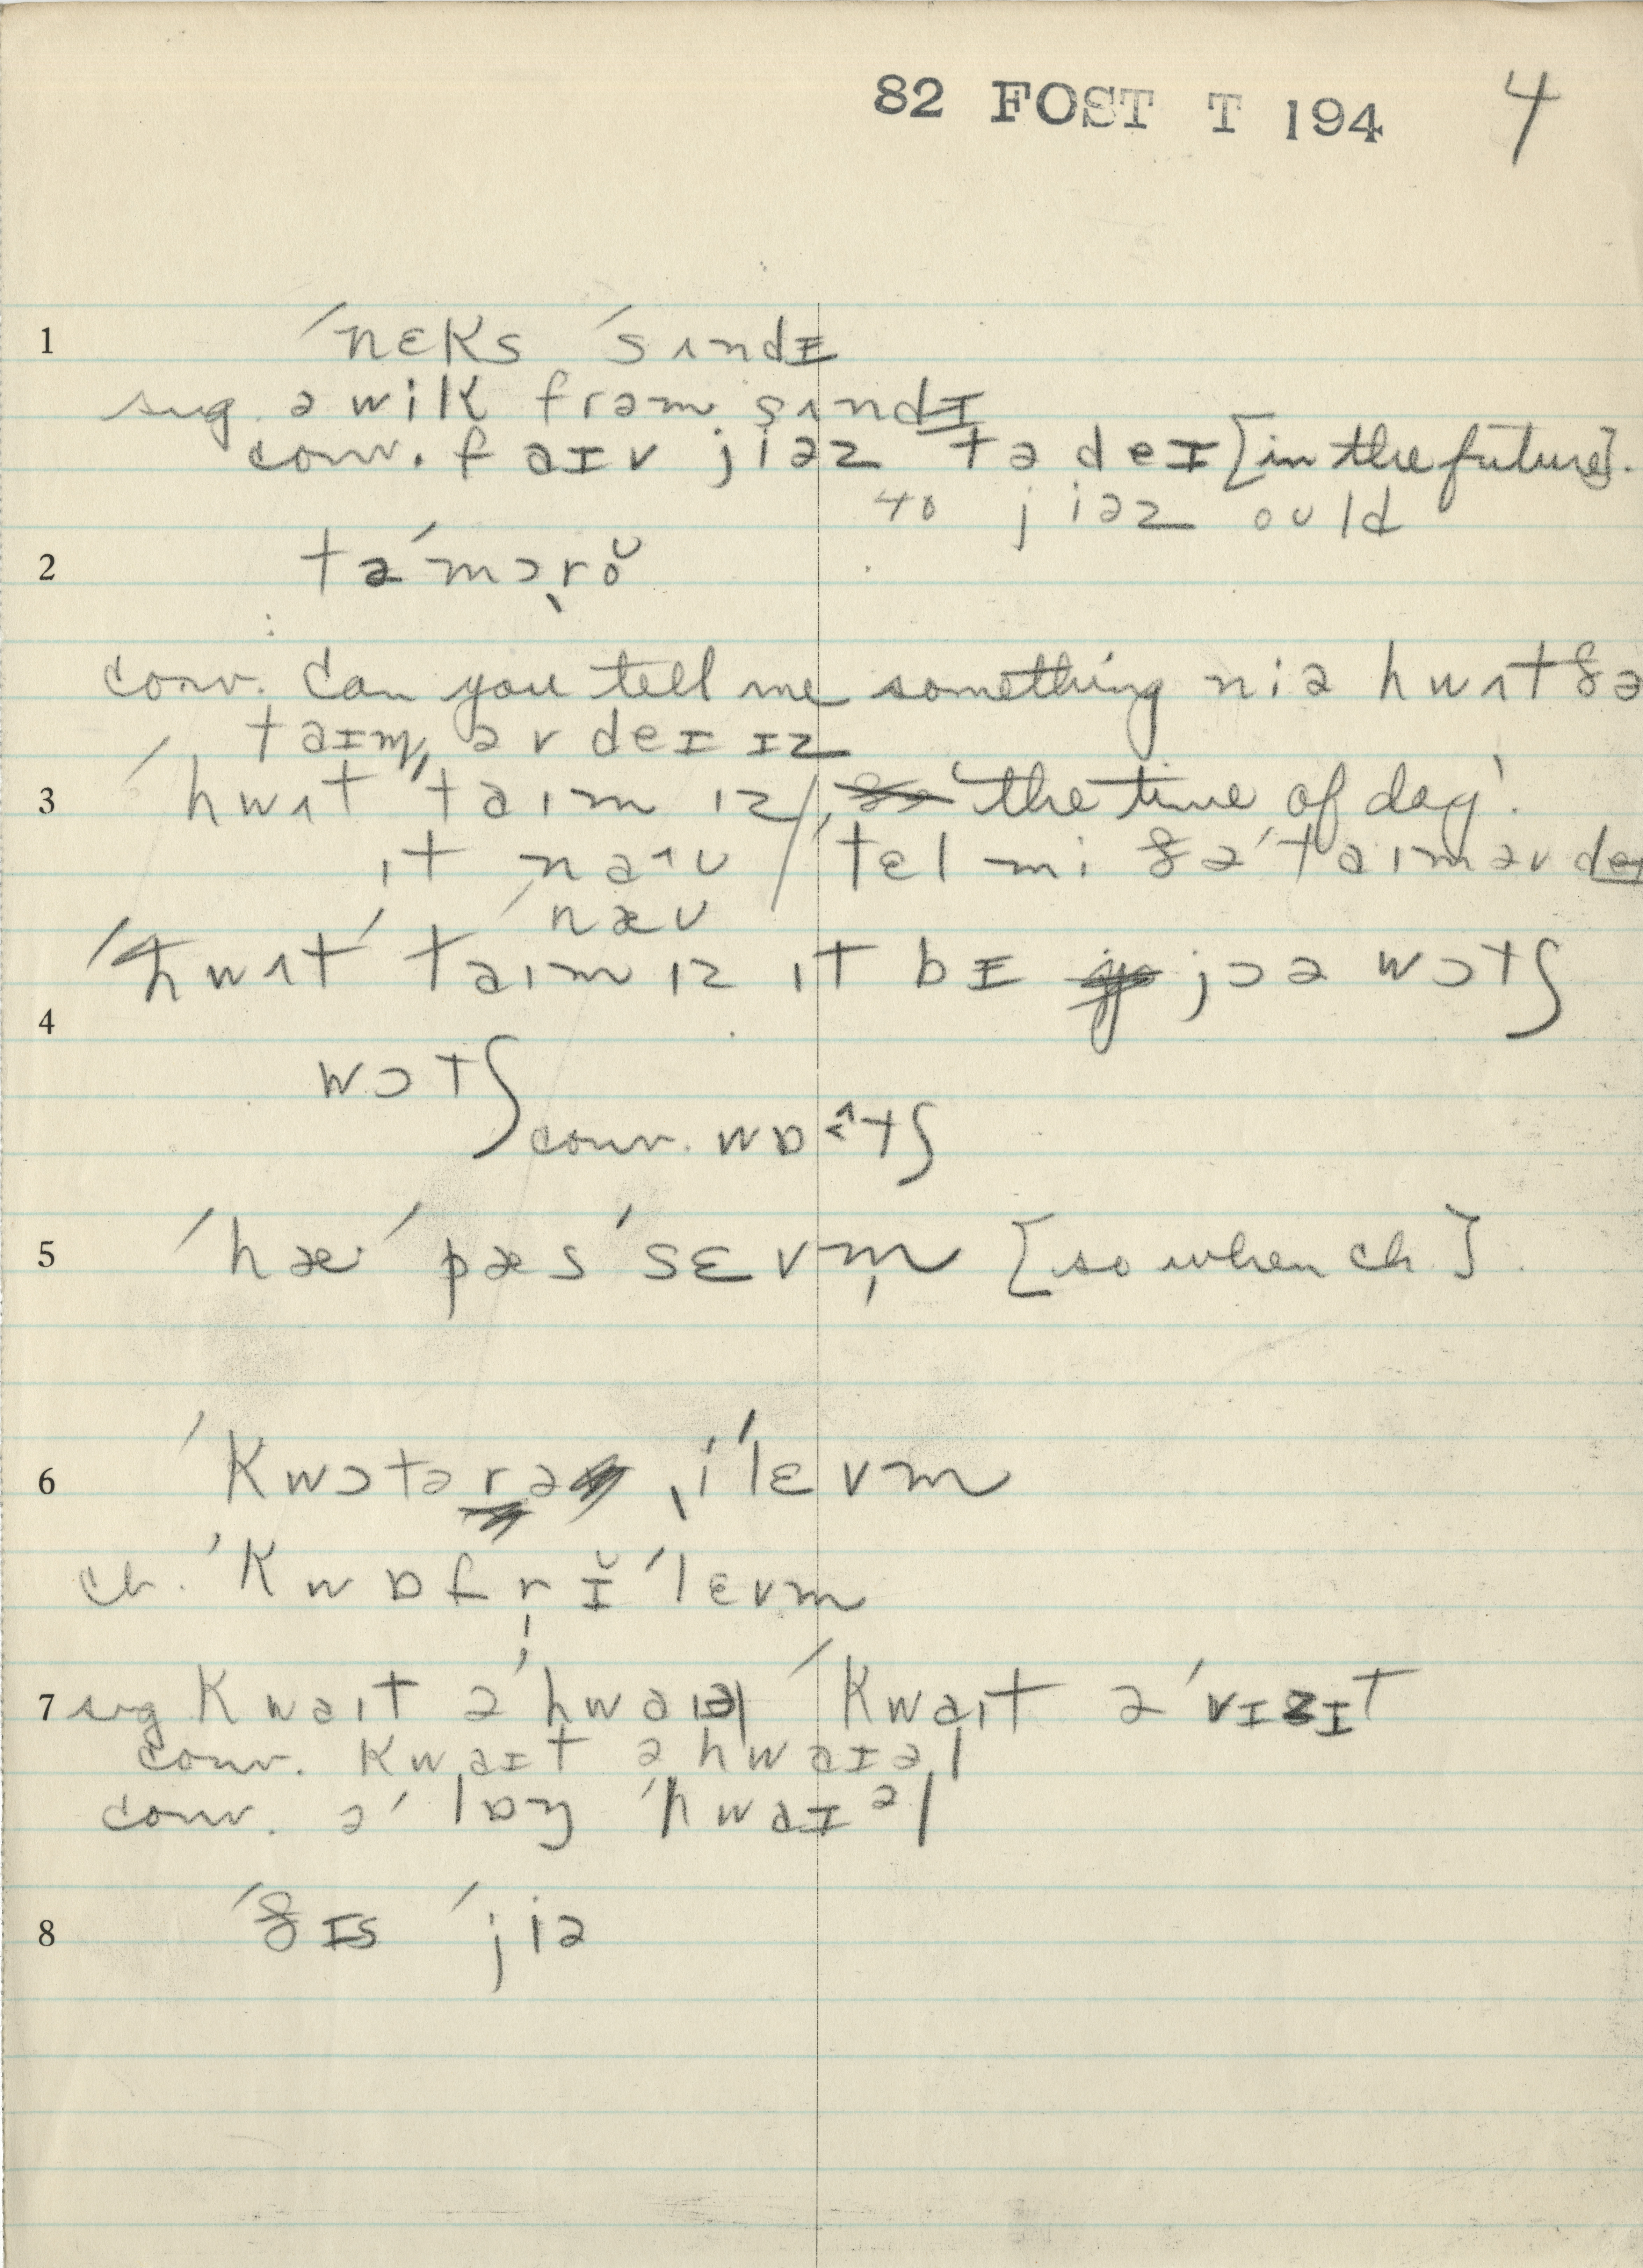 82 FOST T 194 4
1 ˈnɛks ˈsʌndɪ
sug. ə wik frəm sʌndɪ
conv. faɪv jiəz tə deɪ [in the future].
40 jiəz ould
2 təˈmɔr̩ŏ
conv. Can you tell me something niə hwʌt ðə
taɪm əv deɪ ɪz
3 ˈhwʌt ˈtaɪm ɪz / 'the time of day'.
ɪt naʊ / tɛl mi ðə ˈtaɪm əv deɪ
ˈnæʊ
ˈhwʌt ˈtaɪm ɪz ɪt bɪ jɔə wɔtʃ
4
wɔtʃ
conv. wɒ^tʃ
5 ˈhæ ˈpæs ˈsɛvm̩ [so when ch.].
6 ˈkwɔtərə iˈlɛvm
ch. ˈkwɒfr̩ɪ̆ˈlɛvm
7 sug kwaɪt əˈhwaɪəl ˈkwaɪt əˈvɪzɪt
conv. kwaɪt ə hwaɪəl
conv. əˈlɒŋ ˈhwaɪəl
8 ˈðɪs ˈjiə